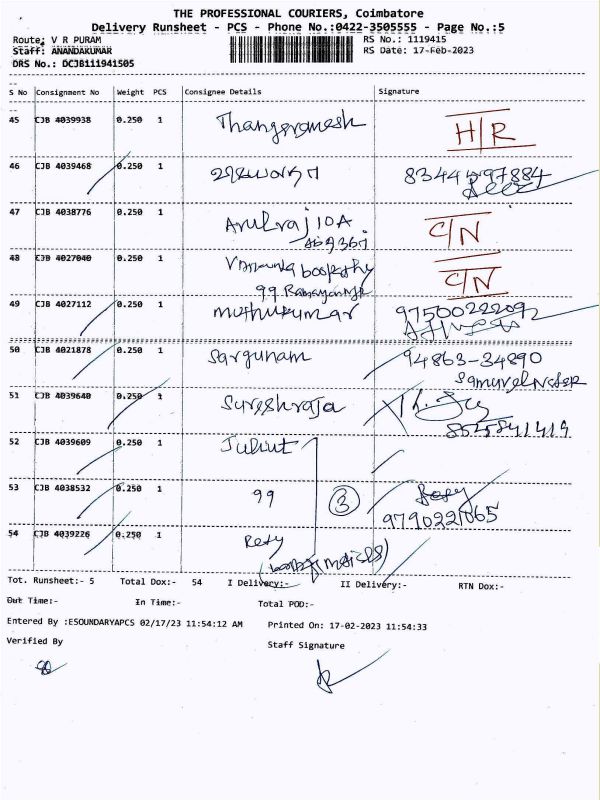 THE PROFESSIONAL COURIERS, Coimbatore
Delivery Runsheet - PCS - Phone No.:0422-3505555 - Page No.:5
Route: V R PURAM
RS No.: 1119415
Staff: ANANDAKUMAR
RS Date: 17-Feb-2023
DRS No.: DCJB111941505
S No Consignment No Weight PCS Consignee Details Signature
45 CJB 4039938 0.250 1 Thangaramesh H/R
46 CJB 4039468 0.250 1
47 CJB 4038776 0.250 1 Arulraj IOA C/N
48 CJB 4027040 0.250 1 C/N
99
49 CJB 4027112 0.250 1 muthukumar 97500222092
50 CJB 4021878 0.250 1 Sargunam 94863-34890
51 CJB 4039640 0.250 1 Sureshraja
8525841419
52 CJB 4039609 0.250 1
53 CJB 4038532 0.250 1 99 3
9790221065
54 CJB 4039226 0.250 1
Tot. Runsheet:- 5 Total Dox:- 54 I Delivery:- II Delivery:- RTN Dox:-
Out Time:- In Time:- Total POD:-
Entered By :ESOUNDARYAPCS 02/17/23 11:54:12 AM Printed On: 17-02-2023 11:54:33
Verified By Staff Signature